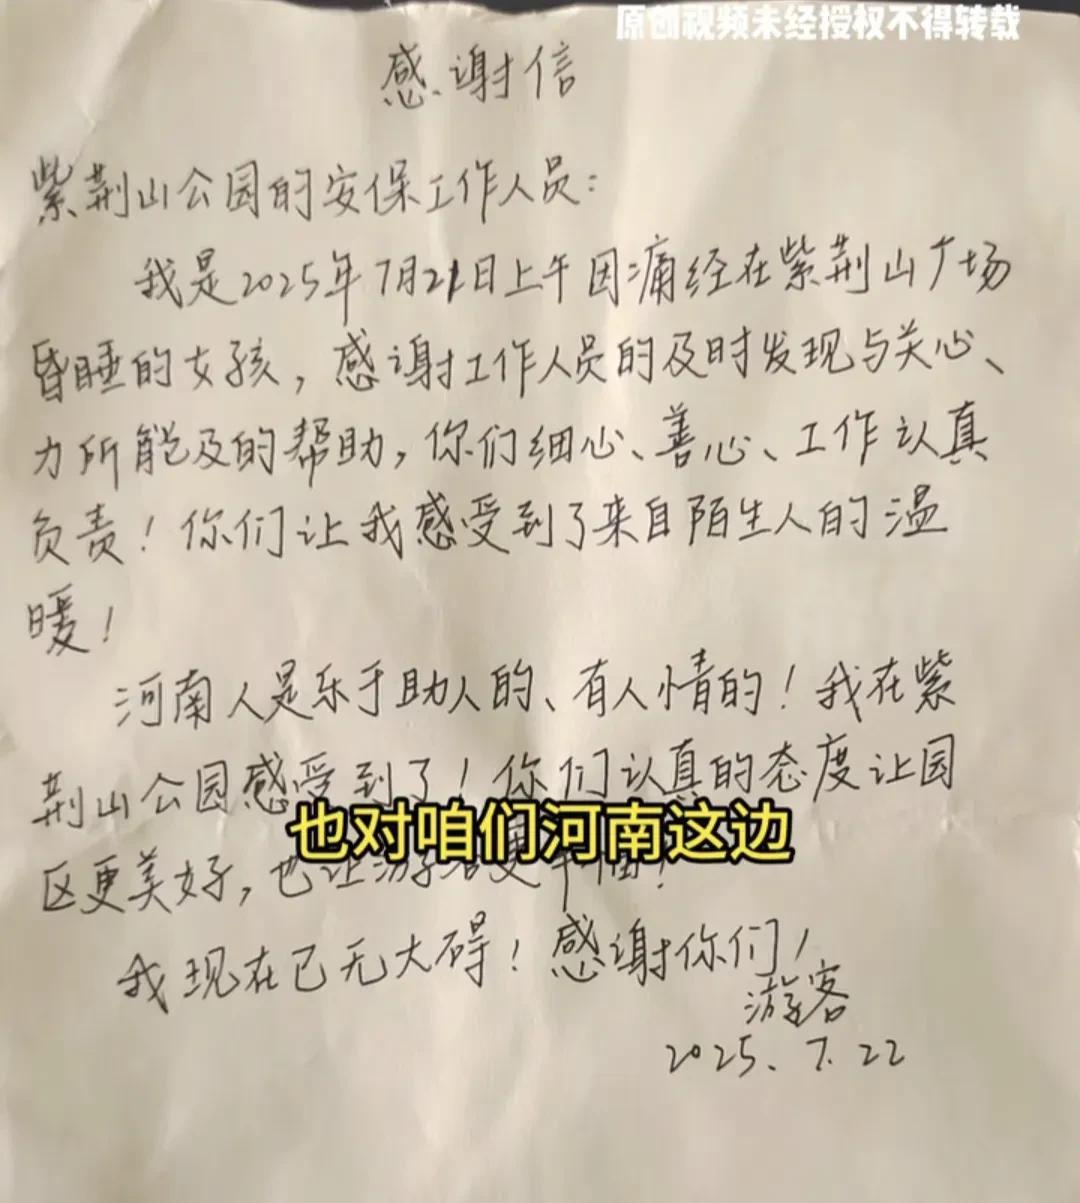 原创视频未经授权不得转载
感谢信
紫荆山公园的安保工作人员：
我是2025年7月21日上午因痛经在紫荆山广场
昏睡的女孩，感谢工作人员的及时发现与关心、
力所能及的帮助，你们细心、善心、工作认真
负责！你们让我感受到了来自陌生人的温
暖！
河南人是乐于助人的、有人情的！我在紫
荆山公园感受到了！你们认真的态度让园
也对咱们河南这边
区更美好，也让游客更
我现在已无大碍！感谢你们！
游客
2025.7.22